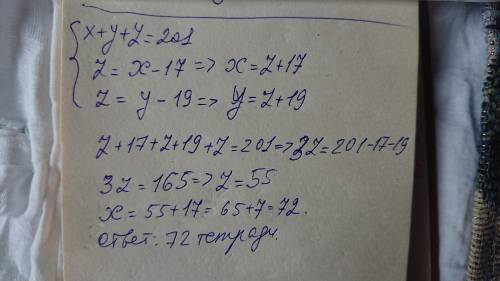 x+y+z=201
z = x-17 => x=z+17
z = y-19 => y=z+19
z+17+z+19+z=201=>3z=201-17-19
3z=165=>z=55
x=55+17=65+7=72.
ответ: 72 тетради.